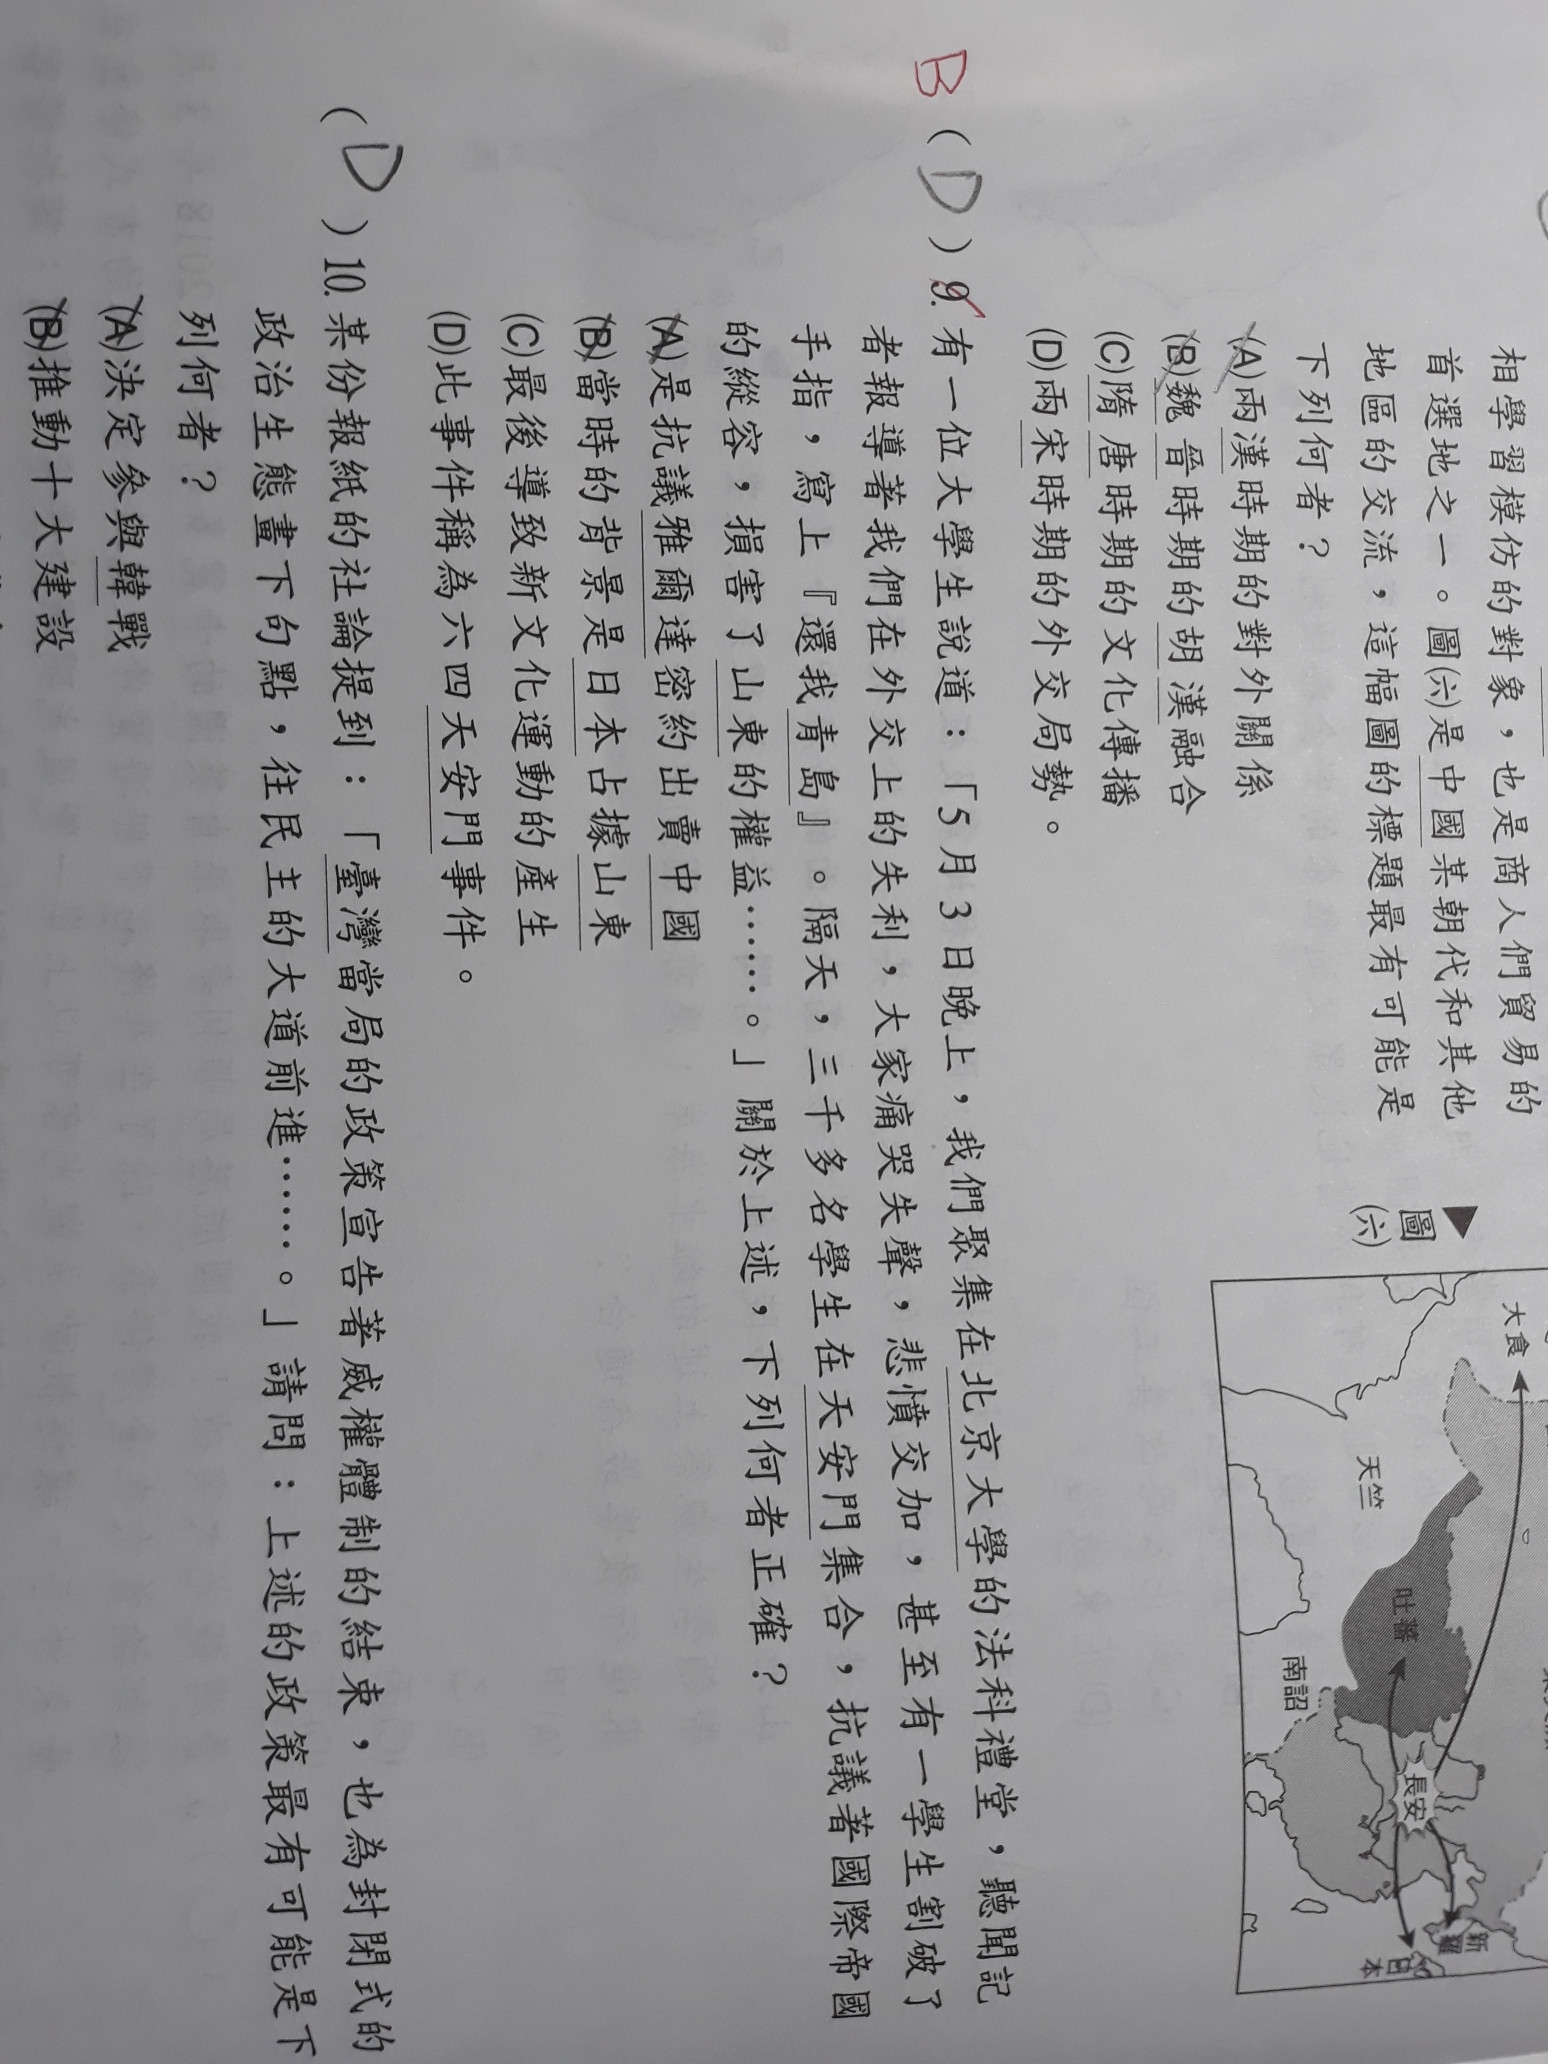 相學習模仿的對象，也是商人們貿易的
首選地之一。圖(六)是中國某朝代和其他
地區的交流，這幅圖的標題最有可能是
下列何者？
(A)兩漢時期的對外關係
(B)魏晉時期的胡漢融合
(C)隋唐時期的文化傳播
(D)兩宋時期的外交局勢。
▲圖(六)
大食
天竺
吐蕃
南詔
長安
新羅
日本
B
(D)9.有一位大學生說道：「5月3日晚上，我們聚集在北京大學的法科禮堂，聽聞記
者報導著我們在外交上的失利，大家痛哭失聲，悲憤交加，甚至有一學生割破了
手指，寫上『還我青島』。隔天，三千多名學生在天安門集合，抗議著國際帝國
的縱容，損害了山東的權益……。」關於上述，下列何者正確？
(A)是抗議雅爾達密約出賣中國
(B)當時的背景是日本占據山東
(C)最後導致新文化運動的產生
(D)此事件稱為六四天安門事件。
(D)10.某份報紙的社論提到：「臺灣當局的政策宣告著威權體制的結束，也為封閉式的
政治生態畫下句點，往民主的大道前進……。」請問：上述的政策最有可能是下
列何者？
(A)決定參與韓戰
(B)推動十大建設